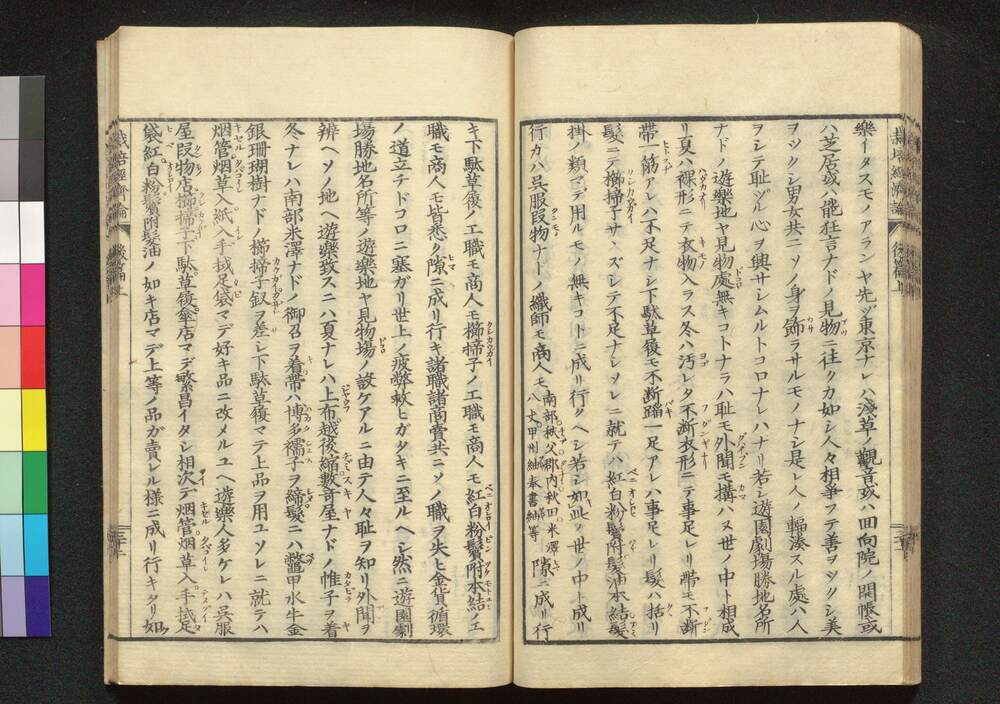 樂ータスモノアランヤ先ヅ東京ナレハ淺草ノ觀音或ハ回向院ノ開帳或
ハ芝居或ハ能狂言ナドノ見物ニ往クカ如シ人々相爭フテ善ヲツクシ美
ヲツクシ男女共ニソノ身ヲ飾ラサルモノナシ是レ人ノ輻湊スル處ハ人
ヲシテ耻ヅル心ヲ興サシムルトコロナレハナリ若シ遊園劇場勝地名所
ナドノ遊樂地ヤ見物處無キコトナラハ耻モ外聞モ搆ハヌ世ノ中ト相成
リ夏ハ裸形ニテ衣物入ラス冬ハ汚レタ不断衣形ニテ事足レリ帯モ不断
帯一筋アレハ不足ナシ下駄草履モ不断蹈一足アレハ事足レリ髮ハ括リ
髮ニテ櫛掃子サヽズシテ不足ナシソレニ就テハ紅白粉鬢附髮油本結髮
掛ノ類マデ用ルモノ無キコトニ成リ行クヘシ若シ如此ノ世ノ中ト成リ
行カハ呉服段物ナトノ織師モ商人モ南部秩父郡内秋田米澤八丈甲州紬奉書紬等隙ニ成リ行
キ下駄草履ノ工職モ商人モ櫛掃子ノ工職モ商人モ紅白粉鬢附本結ノ工
職モ商人モ皆悉ク隙ニ成リ行キ諸職諸商賣共ニソノ職ヲ失ヒ金貨循環
ノ道立チドコロニ塞ガリ世上ノ疲弊救ヒガタキニ至ルヘシ然ニ遊園劇
場勝地名所等ノ遊樂地ヤ見物場ノ設ケアルニ由テ人々耻ヲ知リ外聞ヲ
辨ヘソノ地ヘ遊樂致スニハ夏ナレハ上布越後縮數寄屋ナドノ帷子ヲ着
冬ナレハ南部米澤ナドノ御召ヲ着帯ハ博多襦子ヲ締髮ニハ鼈甲水牛金
銀珊瑚樹ナドノ櫛掃子釵ヲ差シ下駄草履マテ上品ヲ用ユソレニ就テハ
烟管烟草入紙入手拭足袋マデ好キ品ニ改メルユヘ遊樂人多ケレハ呉服
屋段物店櫛掃子下駄草履傘店マデ繁昌イタシ相次デ烟管烟草入手拭足
袋紅白粉鬢附髮油ノ如キ店マデ上等ノ品ガ賣レル様ニ成リ行キタリ如
栽培經濟論